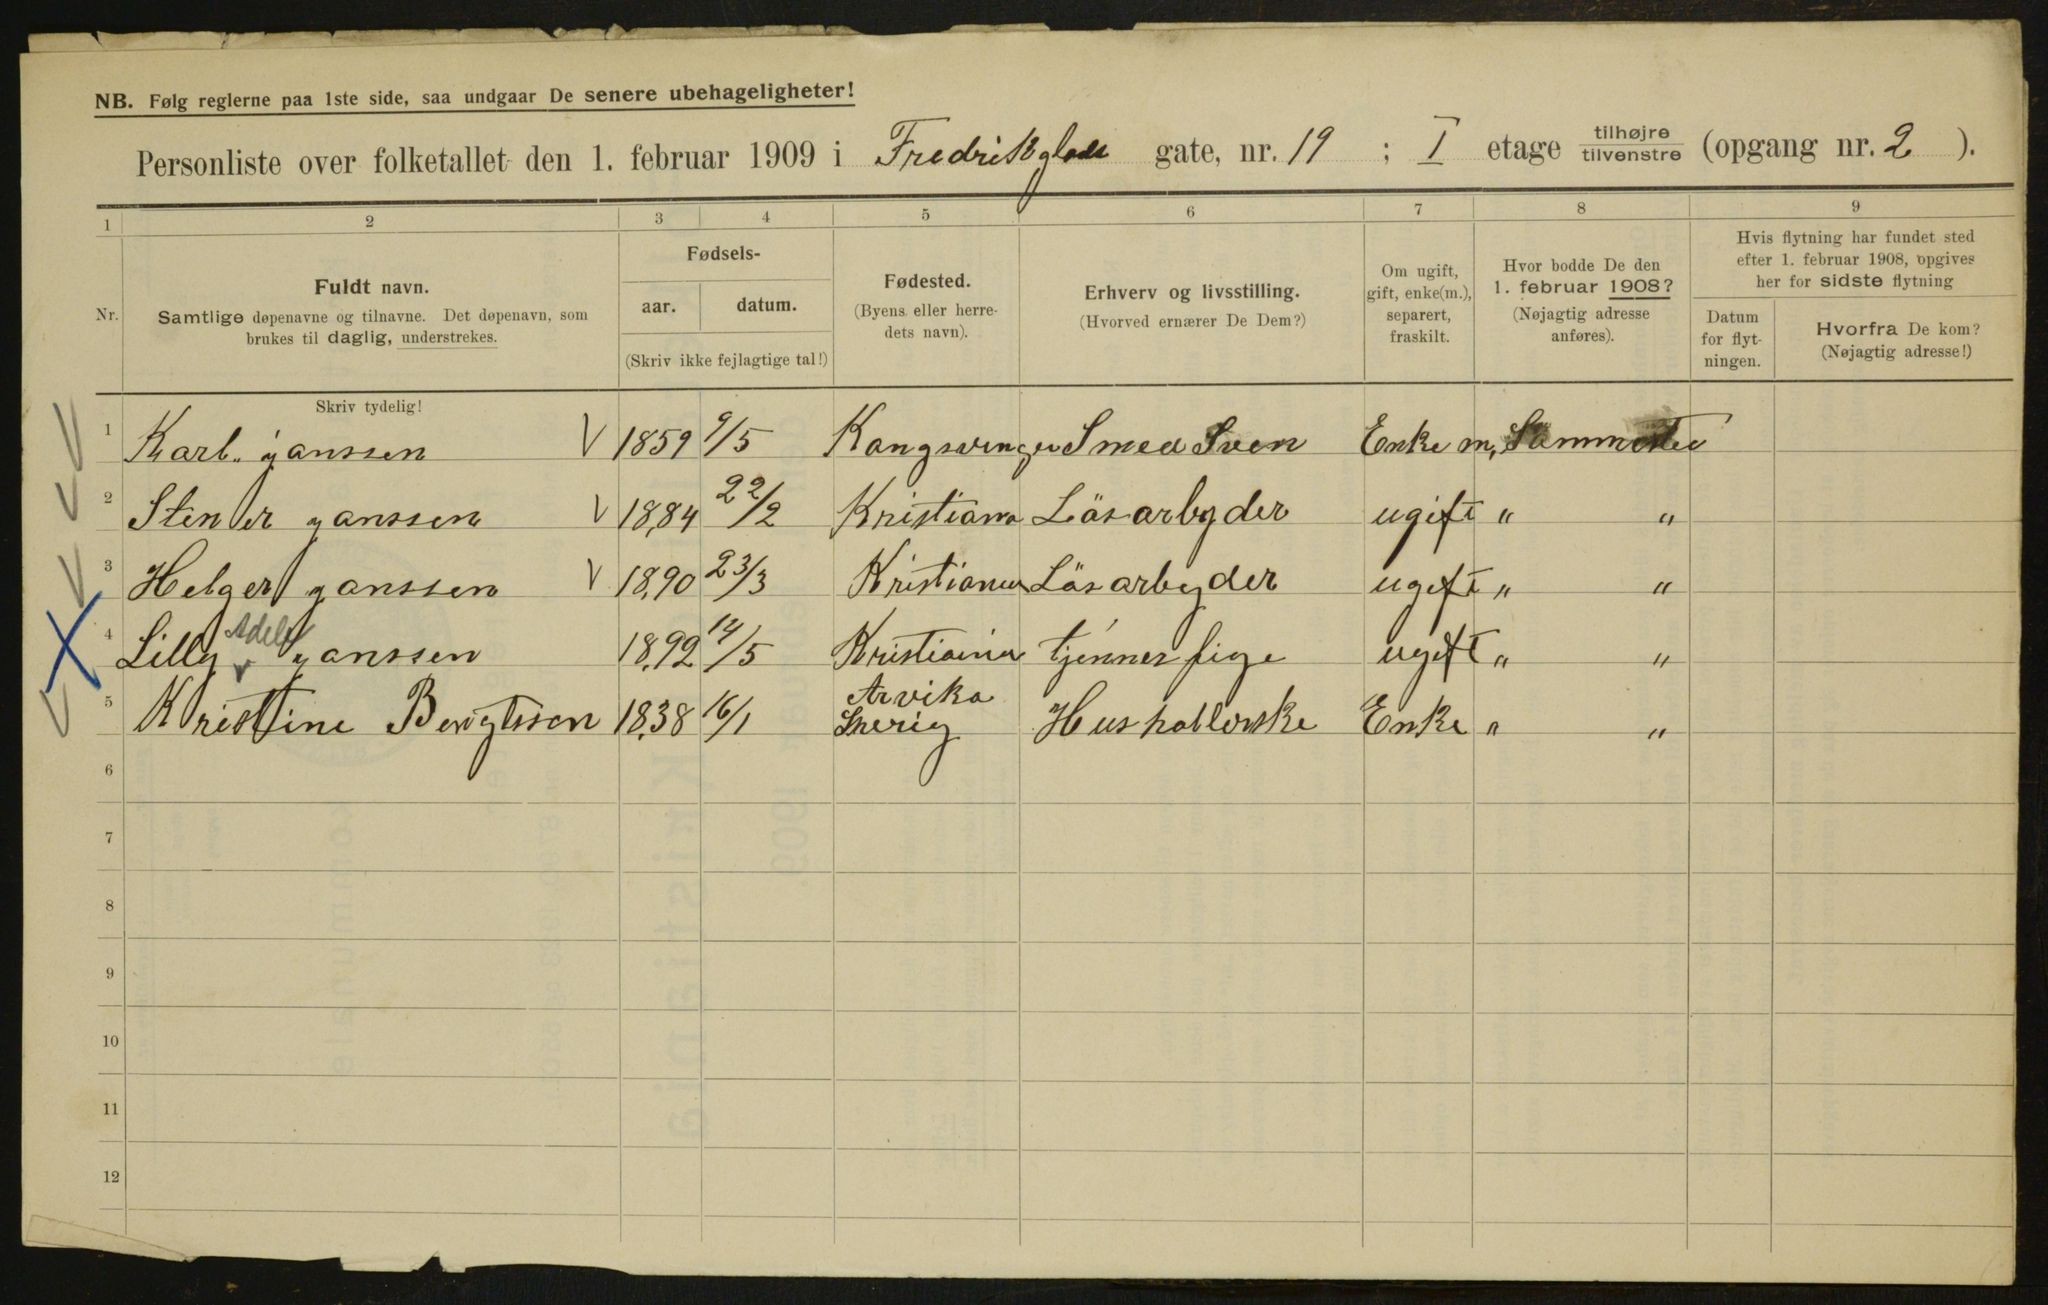 NB. Følg reglerne paa 1ste side, saa undgaar De senere ubehageligheter!
Personliste over folketallet den 1. februar 1909 i Fredrik glads gate, nr. 19 ; I etage tilhøjre/tilvenstre (opgang nr. 2 ).
1 2 3 4 5 6 7 8 9
Nr.
Fuldt navn.
Samtlige døpenavne og tilnavne. Det døpenavn, som
brukes til daglig, understrekes.
Fødsels-
aar. datum.
(Skriv ikke fejlagtige tal!)
Fødested.
(Byens eller herre-
dets navn).
Erhverv og livsstilling.
(Hvorved ernærer De Dem?)
Om ugift,
gift, enke(m.),
separert,
fraskilt.
Hvor bodde De den
1. februar 1908?
(Nøjagtig adresse
anføres).
Hvis flytning har fundet sted
efter 1. februar 1908, opgives
her for sidste flytning
Datum
for flyt-
ningen.
Hvorfra De kom?
(Nøjagtig adresse!)
Skriv tydelig!
1 Karl. janssen V 1859 9/5 Kangsvinger Smed Sven Enke m, Sammested
2 Stener janssen V 1884 22/2 Kristiana Läsarbyder ugift " "
3 Helger janssen V 1890 23/3 Kristiania Läsarbyder ugift " "
Adele
4 Lilly v janssen 1892 14/5 Kristiania tjenner pige ugift " "
Arvika
5 Kristine Bengtsson 1838 16/1 Sverig Husholderske Enke " "
6
7
8
9
10
11
12